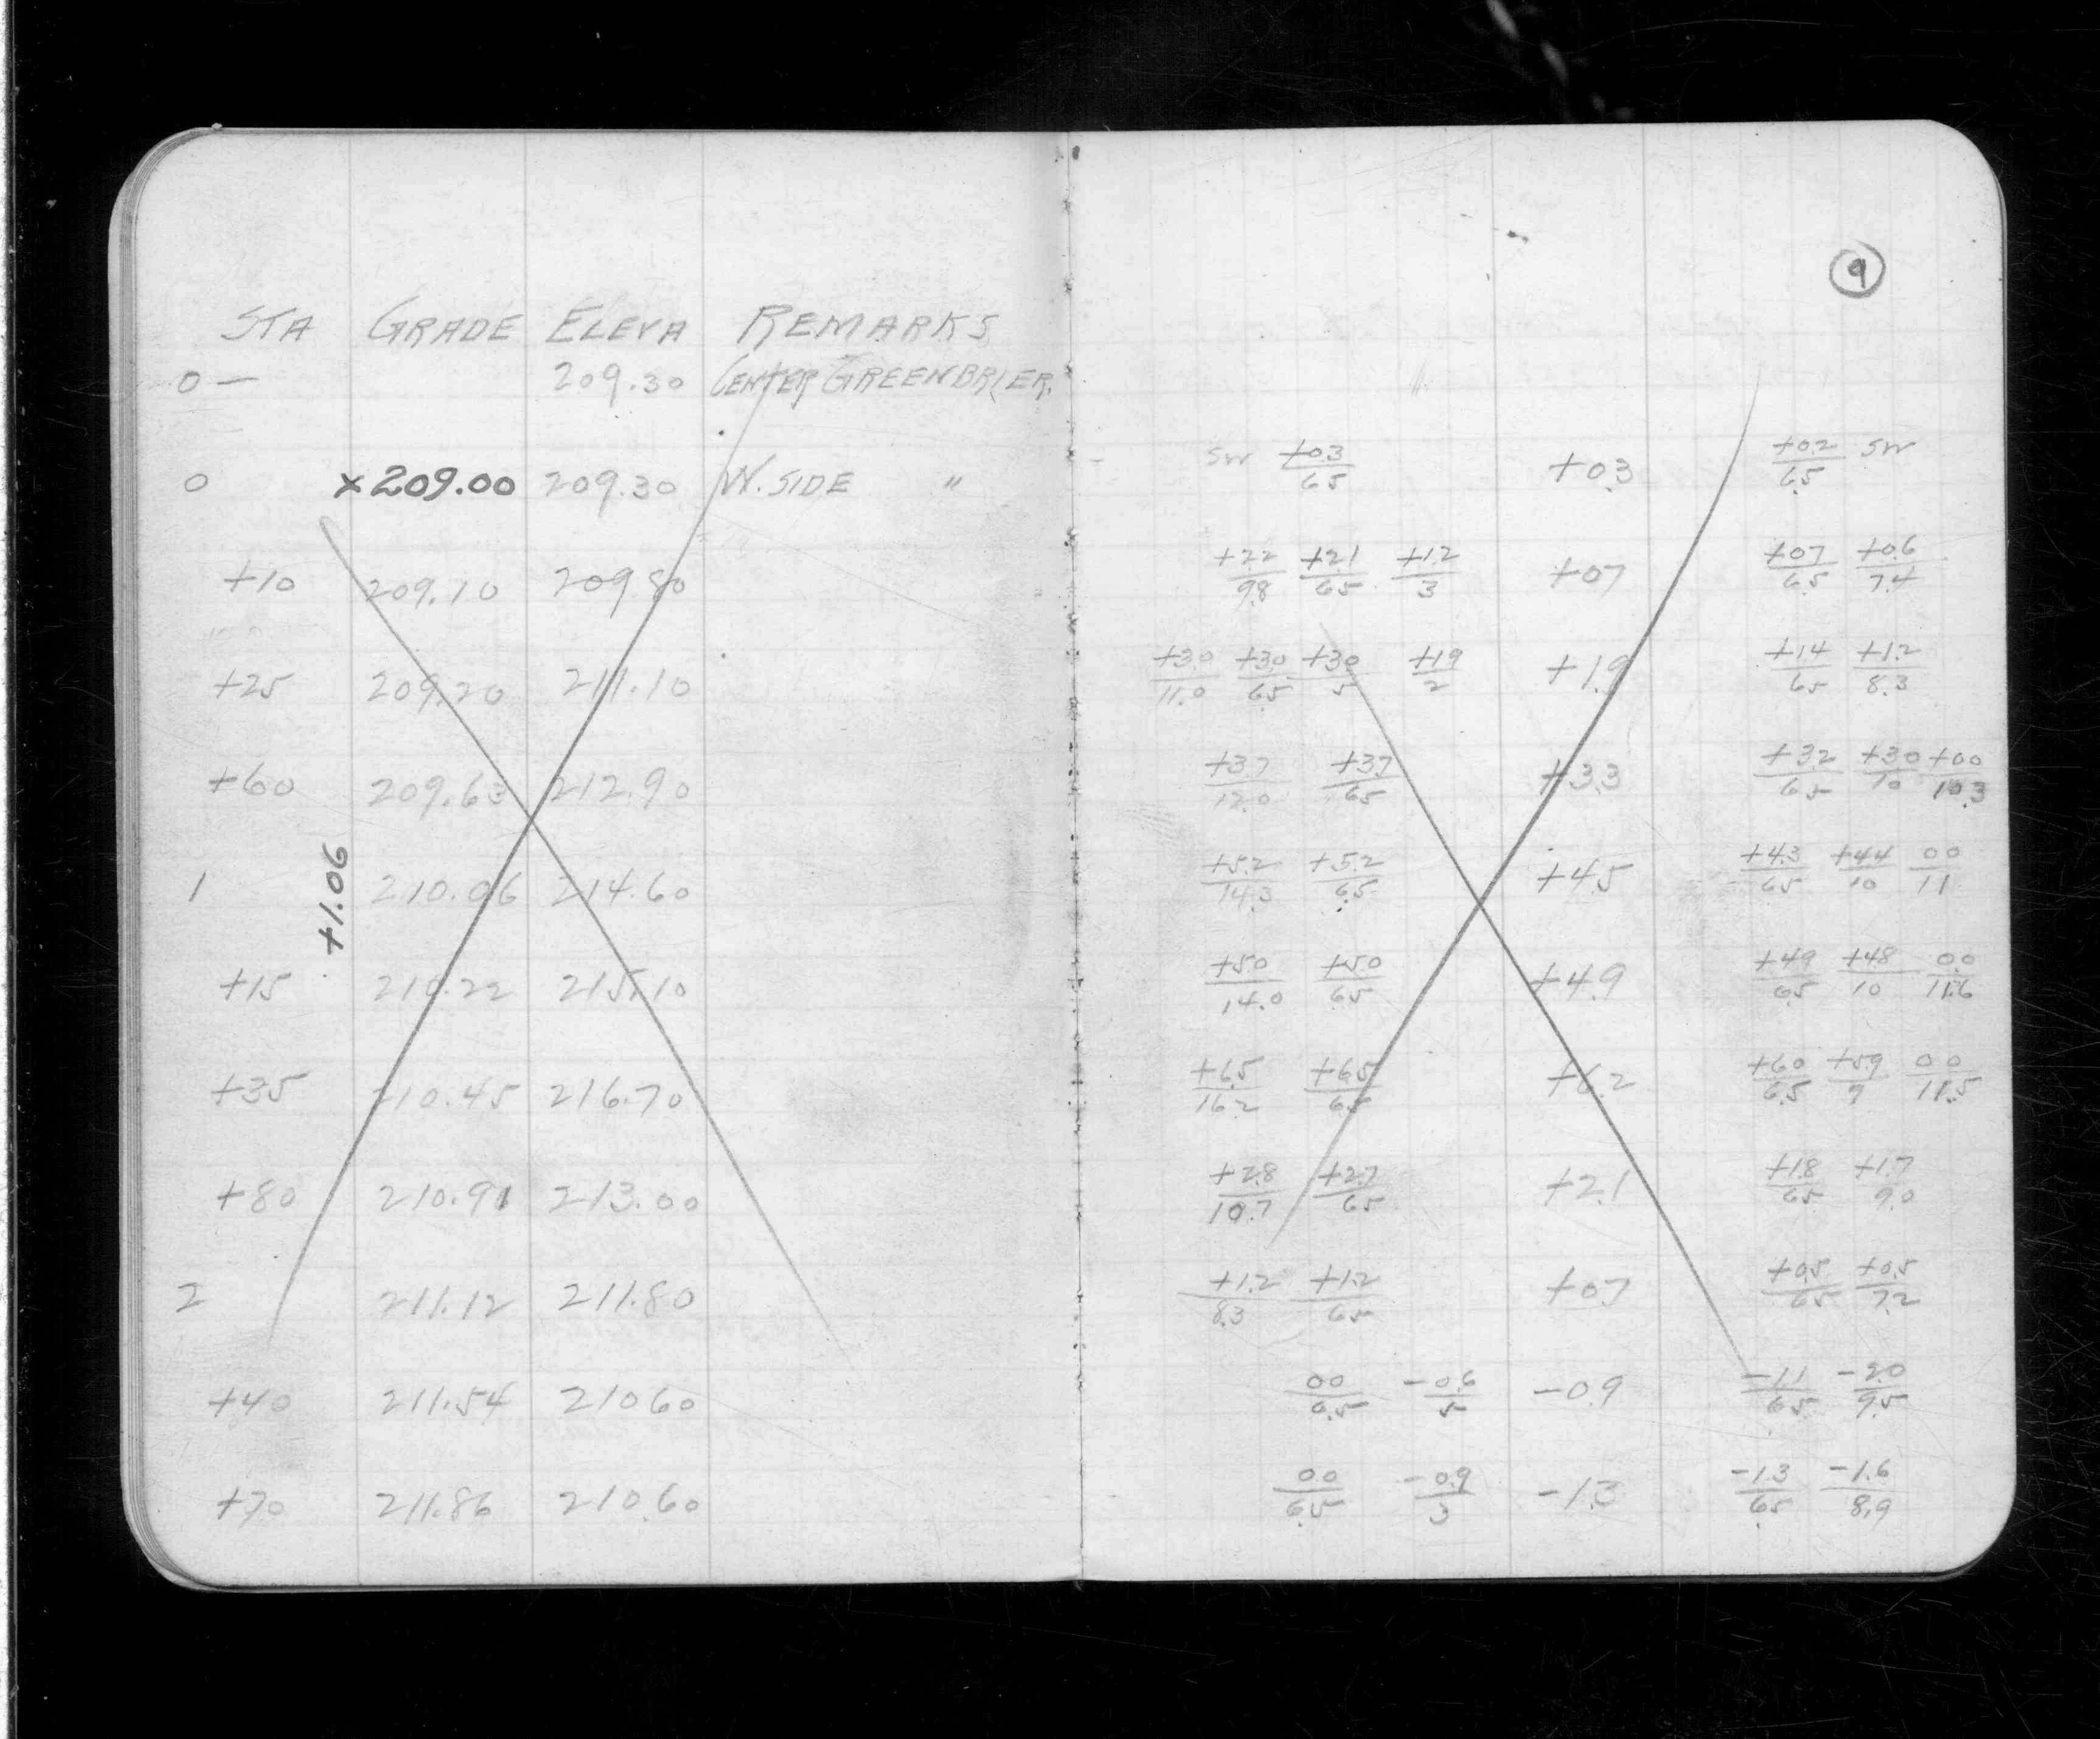 9
STA GRADE ELEVA REMARKS
0 — 209.30 CENTER GREENBRIER.
0 x209.00 209.30 W. SIDE " SW +0.3/6.5 +0.3 +0.2/6.5 SW
+10 209.10 209.80 +2.2/9.8 +2.1/6.5 +1.2/3 +0.7 +0.7/6.5 +0.6/7.4
+25 209.20 211.10 +3.0/11.0 +3.0/6.5 +3.0/5 +1.9/2 +1.9 +1.4/6.5 +1.2/8.3
+60 209.63 212.90 +3.7/12.0 +3.7/6.5 +3.3 +3.2/6.5 +3.0/10 +0.0/10.3
+1.06
1 210.06 214.60 +5.2/14.3 +5.2/6.5 +4.5 +4.3/6.5 +4.4/10 0.0/11
+15 210.22 215.10 +5.0/14.0 +5.0/6.5 +4.9 +4.9/6.5 +4.8/10 0.0/11.6
+35 210.45 216.70 +6.5/16.2 +6.5/6.5 +6.2 +6.0/6.5 +5.9/9 0.0/11.5
+80 210.91 213.00 +2.8/10.7 +2.7/6.5 +2.1 +1.8/6.5 +1.7/9.0
2 211.12 211.80 +1.2/8.3 +1.2/6.5 +0.7 +0.5/6.5 +0.5/7.2
+40 211.54 210.60 0.0/6.5 -0.6/5 -0.9 -1.1/6.5 -2.0/9.5
+70 211.86 210.60 0.0/6.5 -0.9/3 -1.3 -1.3/6.5 -1.6/8.9